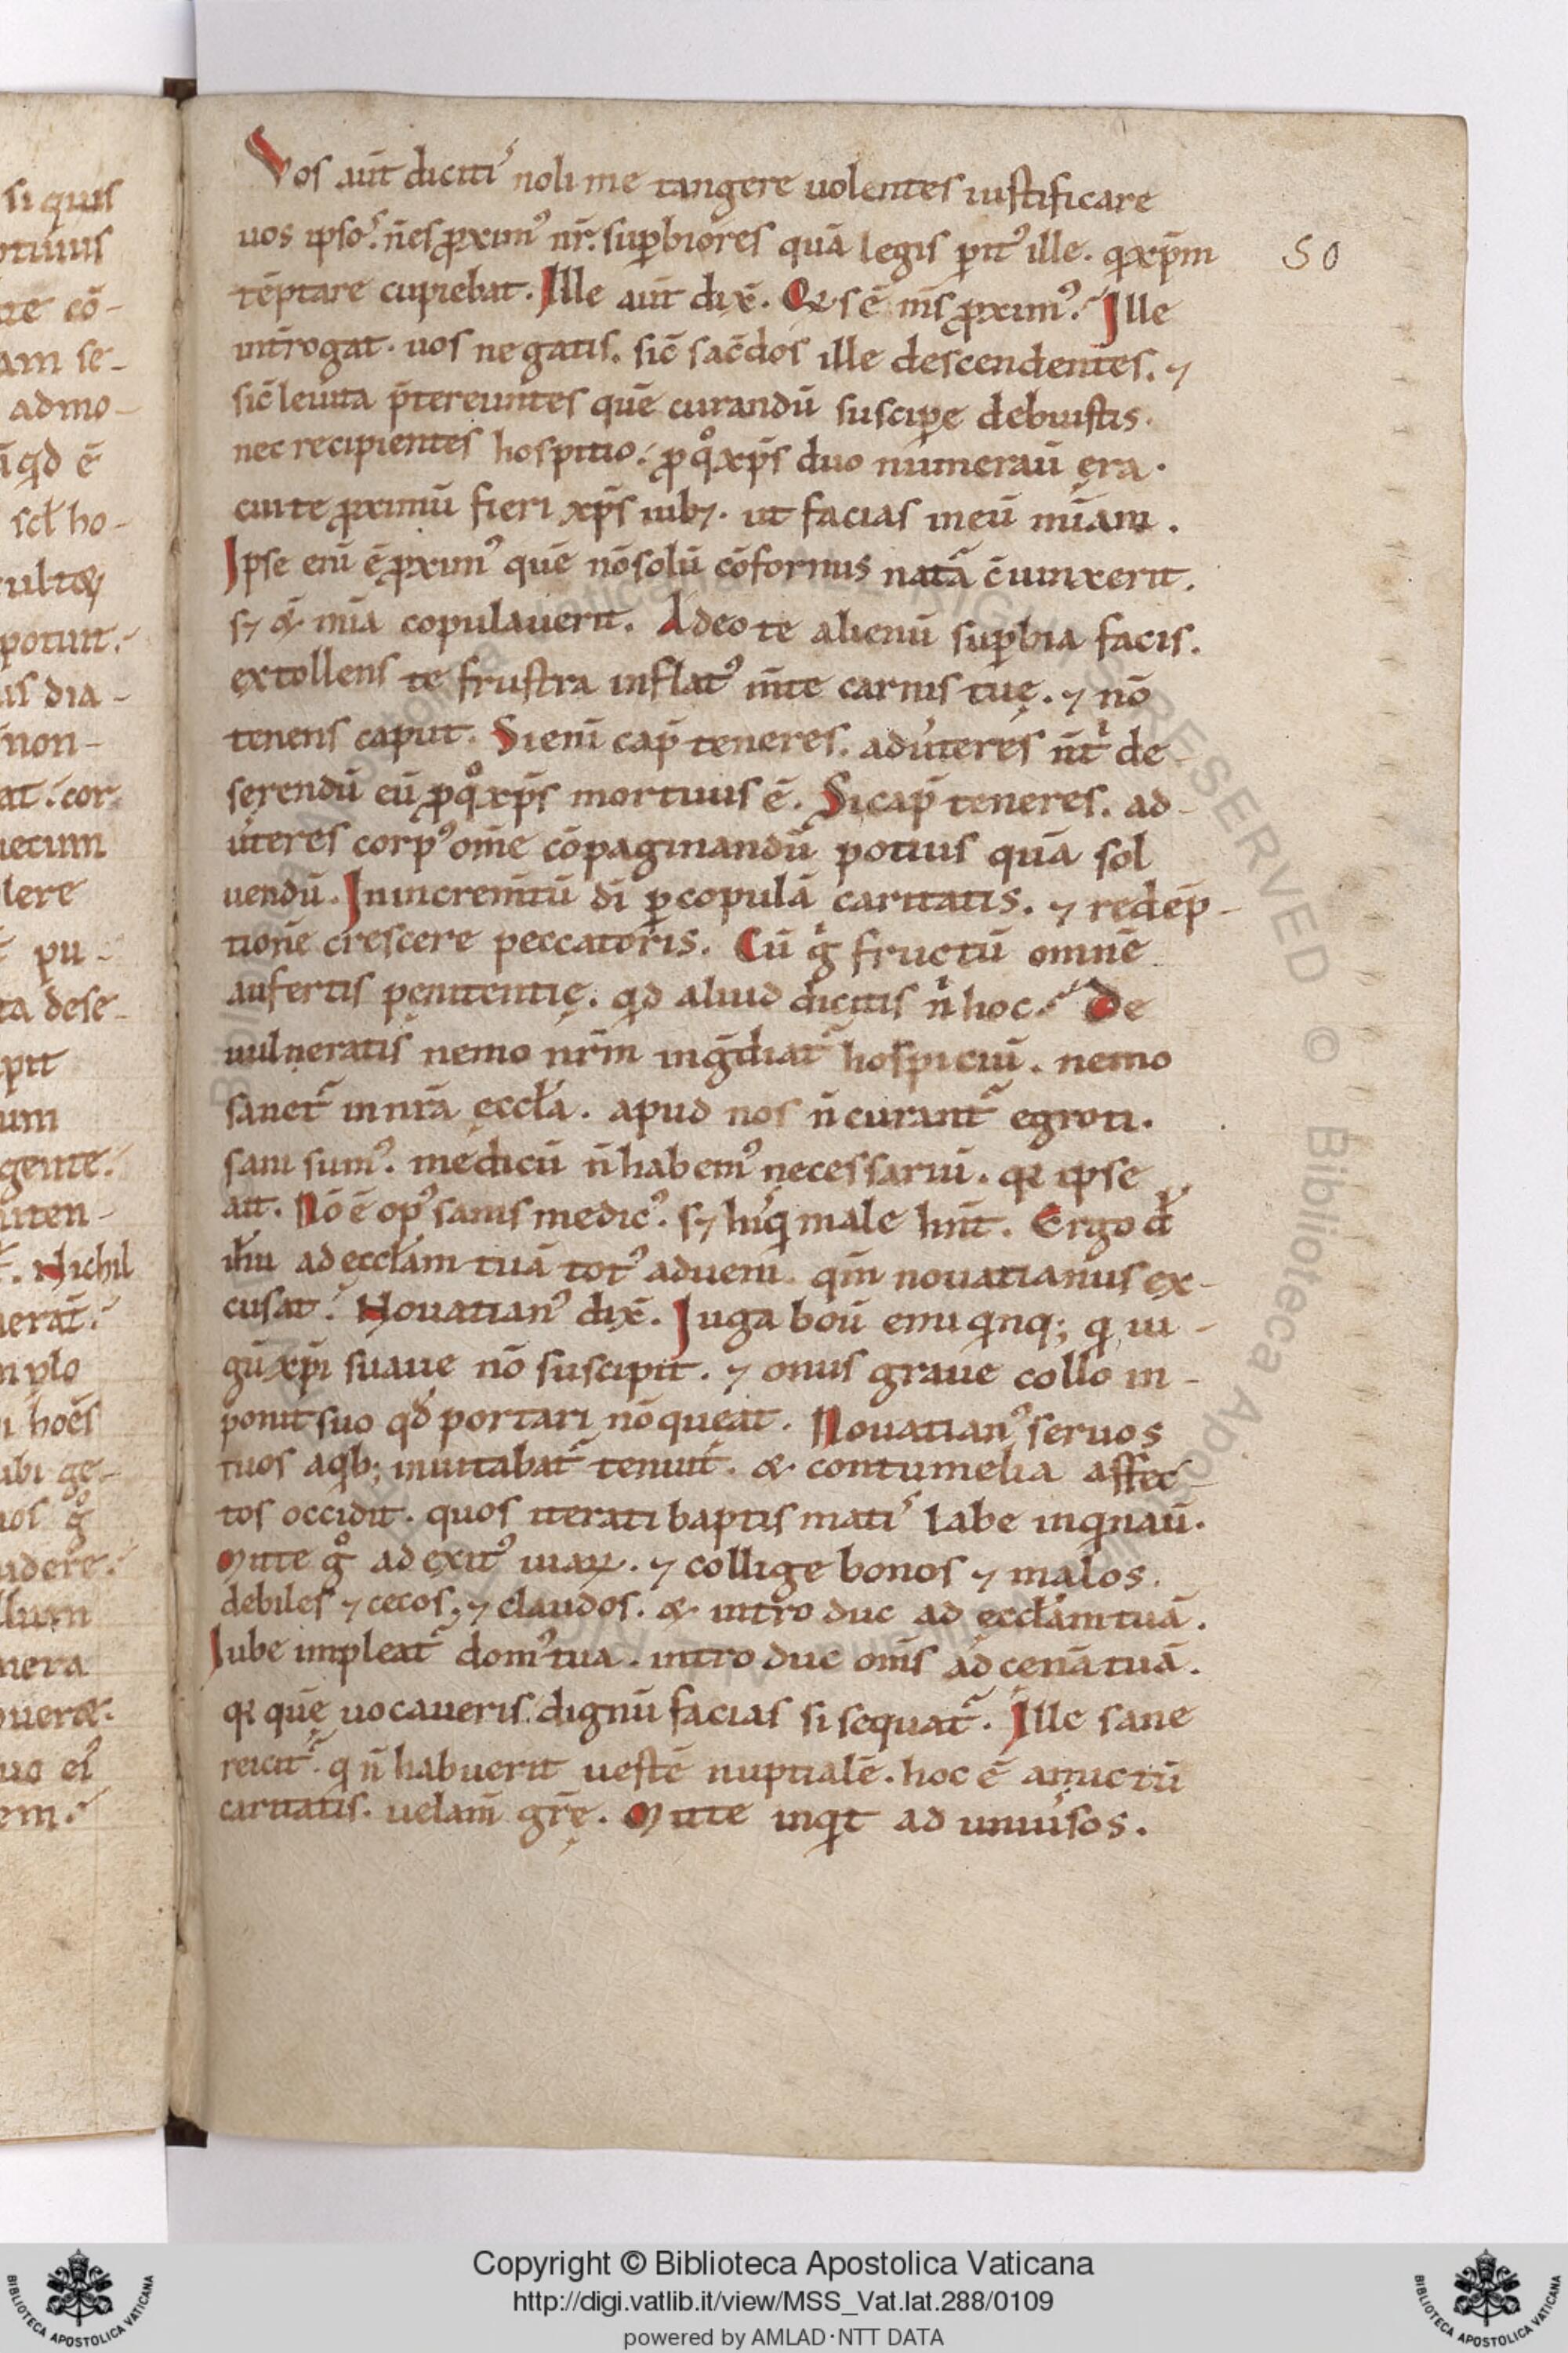 si quis
otiuus
ute cō-
am se-
admo-
āq̇d ē
scł ho-
cultę
potuit.
us dia-
non-
at. cor
uecum
lere
pu-
ta dese-
pit
um
gente.
niten-
Nichil
uerat.
mplo
hoēs
ubi ge-
nos g̊
udere.
llum
nera
uerę.
uo ei᷒
em.
Vos aut̄ diciti᷒ noli me tangere uolentes iustificare
uos ipso᷒. n̄ es ꝓximꝰ nr̄. suꝑbiores quā legis ꝑitꝰ ille. q xp̄m
tēptare cupiebat. Ille aut̄ dix̄. Qis ē m̄s ꝓximꝰ. Ille
int̄rogat. uos negatis. sic̄ sac̄dos ille descendentes. ⁊
sic̄ leuita p̄tereuntes quē curandū suscipe debuistis.
nec recipientes hospitio. ꝓ qͦ xp̄s duo numerau̅ ęra.
cui te ꝓximū fieri xp̄s iubꝫ. ut facias meū mīam.
Ipse enī ē ꝓximꝰ quē nō solū cōformis natā c̄iunxerit.
sꝫ & mīa copulauerit. Adeo te alienū suꝑbia facis.
extollens te frustra inflatꝰ m̄te carnis tuę. ⁊ nō
tenens caput. Si enī cap̄ teneres. aduteres n̄t de
serendū eū ꝓ qͦ xp̄s mortuus ē. Si cap̄ teneres. ad-
uteres corpꝰ om̄e cōpaginandū potius quā sol
uendū. In increm̄tū dī ꝑ copulā caritatis. ⁊ redēp̄-
tionē crescere peccatoris. Cū g̊ fructū omnē
aufertis pęnitentię. qd aliud dicitis ni hoc. De
uulneratis nemo nr̄m inḡdiat᷒ hospiciū. nemo
sanet᷒ in nrā ęccła. apud nos n̄ curant᷒ egroti.
sani sumꝰ. medicū n̄ habemꝰ necessariū. qi ipse
ait. Nō ē opꝰ sanis medicꝰ. sꝫ his q male hn̄t. Ergo d
ih̄u ad ęccłam tuā totꝰ adueni. qm̄ nouatianus ex-
cusat. Nouatianꝰ dix̄. Iuga boū emi qinqꝫ q iu-
gū xp̄i suaue nō suscipit. ⁊ onus graue collo in-
ponit suo qd portari nō queat. Nouatianꝰ seruos
tuos aqbꝫ inuitabat᷒ tenuit. & contumelia affec-
tos occidit. quos iterati baptismati᷒ labe inqnau̅.
Mitte g̊ ad exitꝰ uiaꝝ. ⁊ collige bonos ⁊ malos.
debiles ⁊ cecos, ⁊ claudos. & intro duc ad ęccłam tuā.
Iube impleat᷒ domꝰ tua. intro duc om̄s ad cenā tuā.
qi quē uocaueris dignū facias si sequat᷒. Ille sane
reicit᷒. q n̄ habuerit uestē nuptialē. hoc ē amictū
caritatis. uelam̄ gr̄ę. Mitte inqit ad uniu̅sos.
50
Copyright © Biblioteca Apostolica Vaticana
http://digi.vatlib.it/view/MSS_Vat.lat.288/0109
powered by AMLAD·NTT DATA
BIBLIOTECA APOSTOLICA VATICANA
BIBLIOTECA APOSTOLICA VATICANA